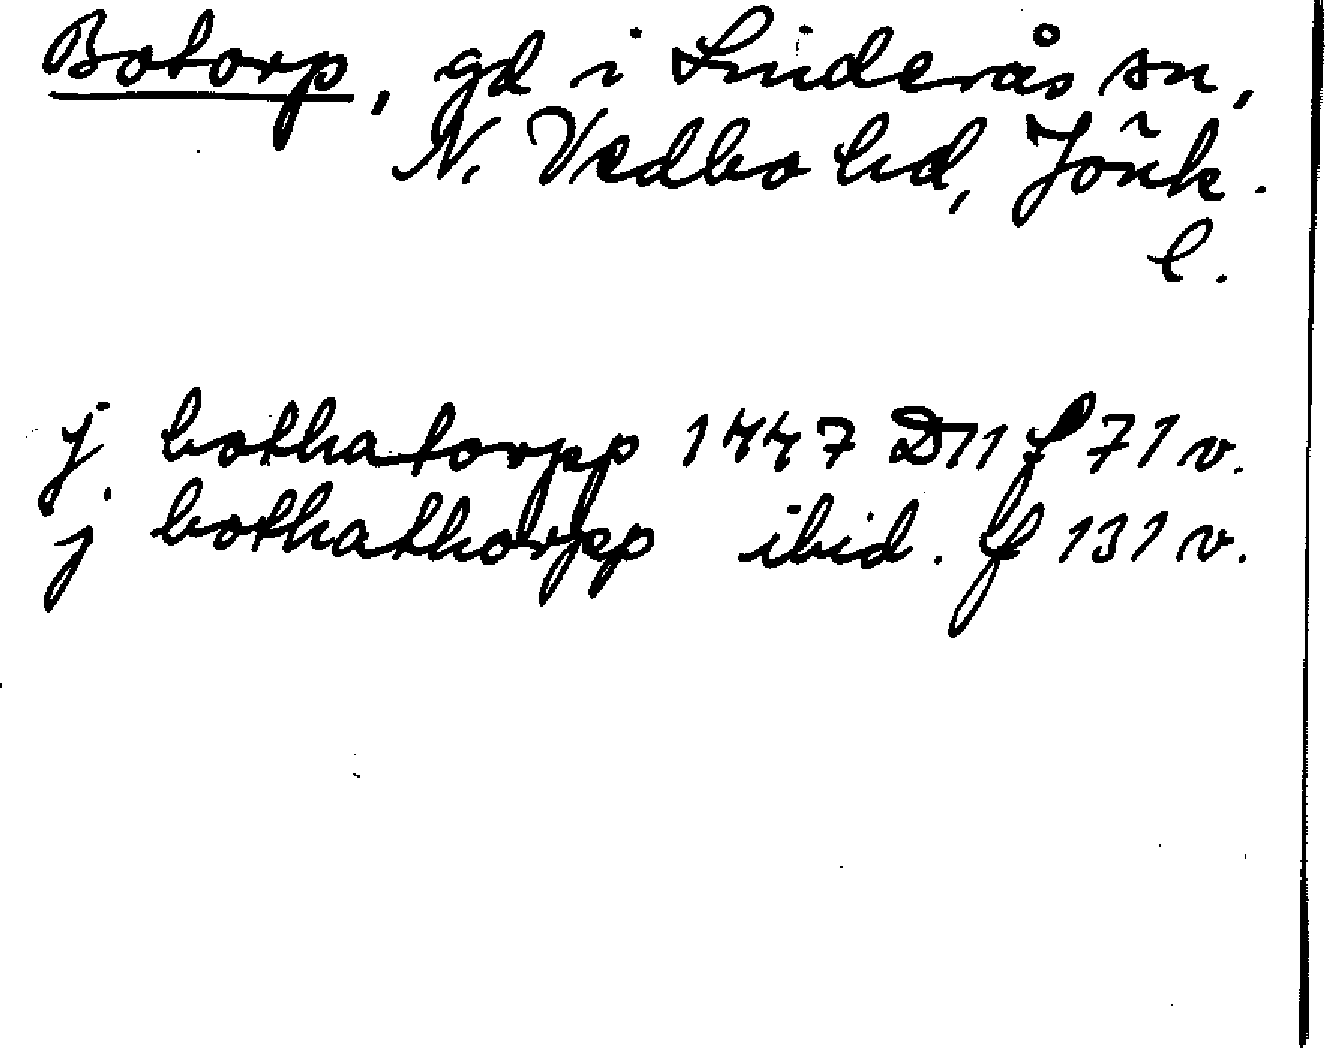 Botorp, gd i Linderås sn,
N. Vedbo hd, Jönk.
l.
j bothatorpp 1447 D11 f 71 v.
j bothathorpp ibid. f 131 v.